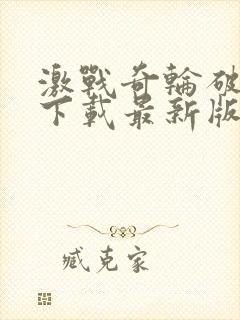 激戰奇輪破
下載最新版
臧克家